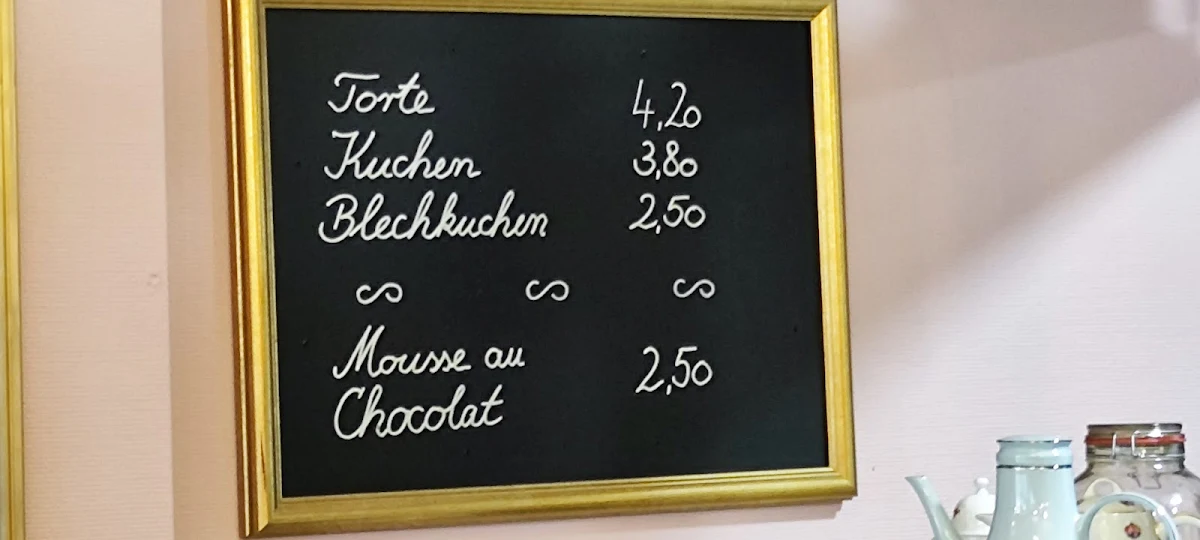 Torte 4,20
Kuchen 3,80
Blechkuchen 2,50
Mousse au 2,50
Chocolat